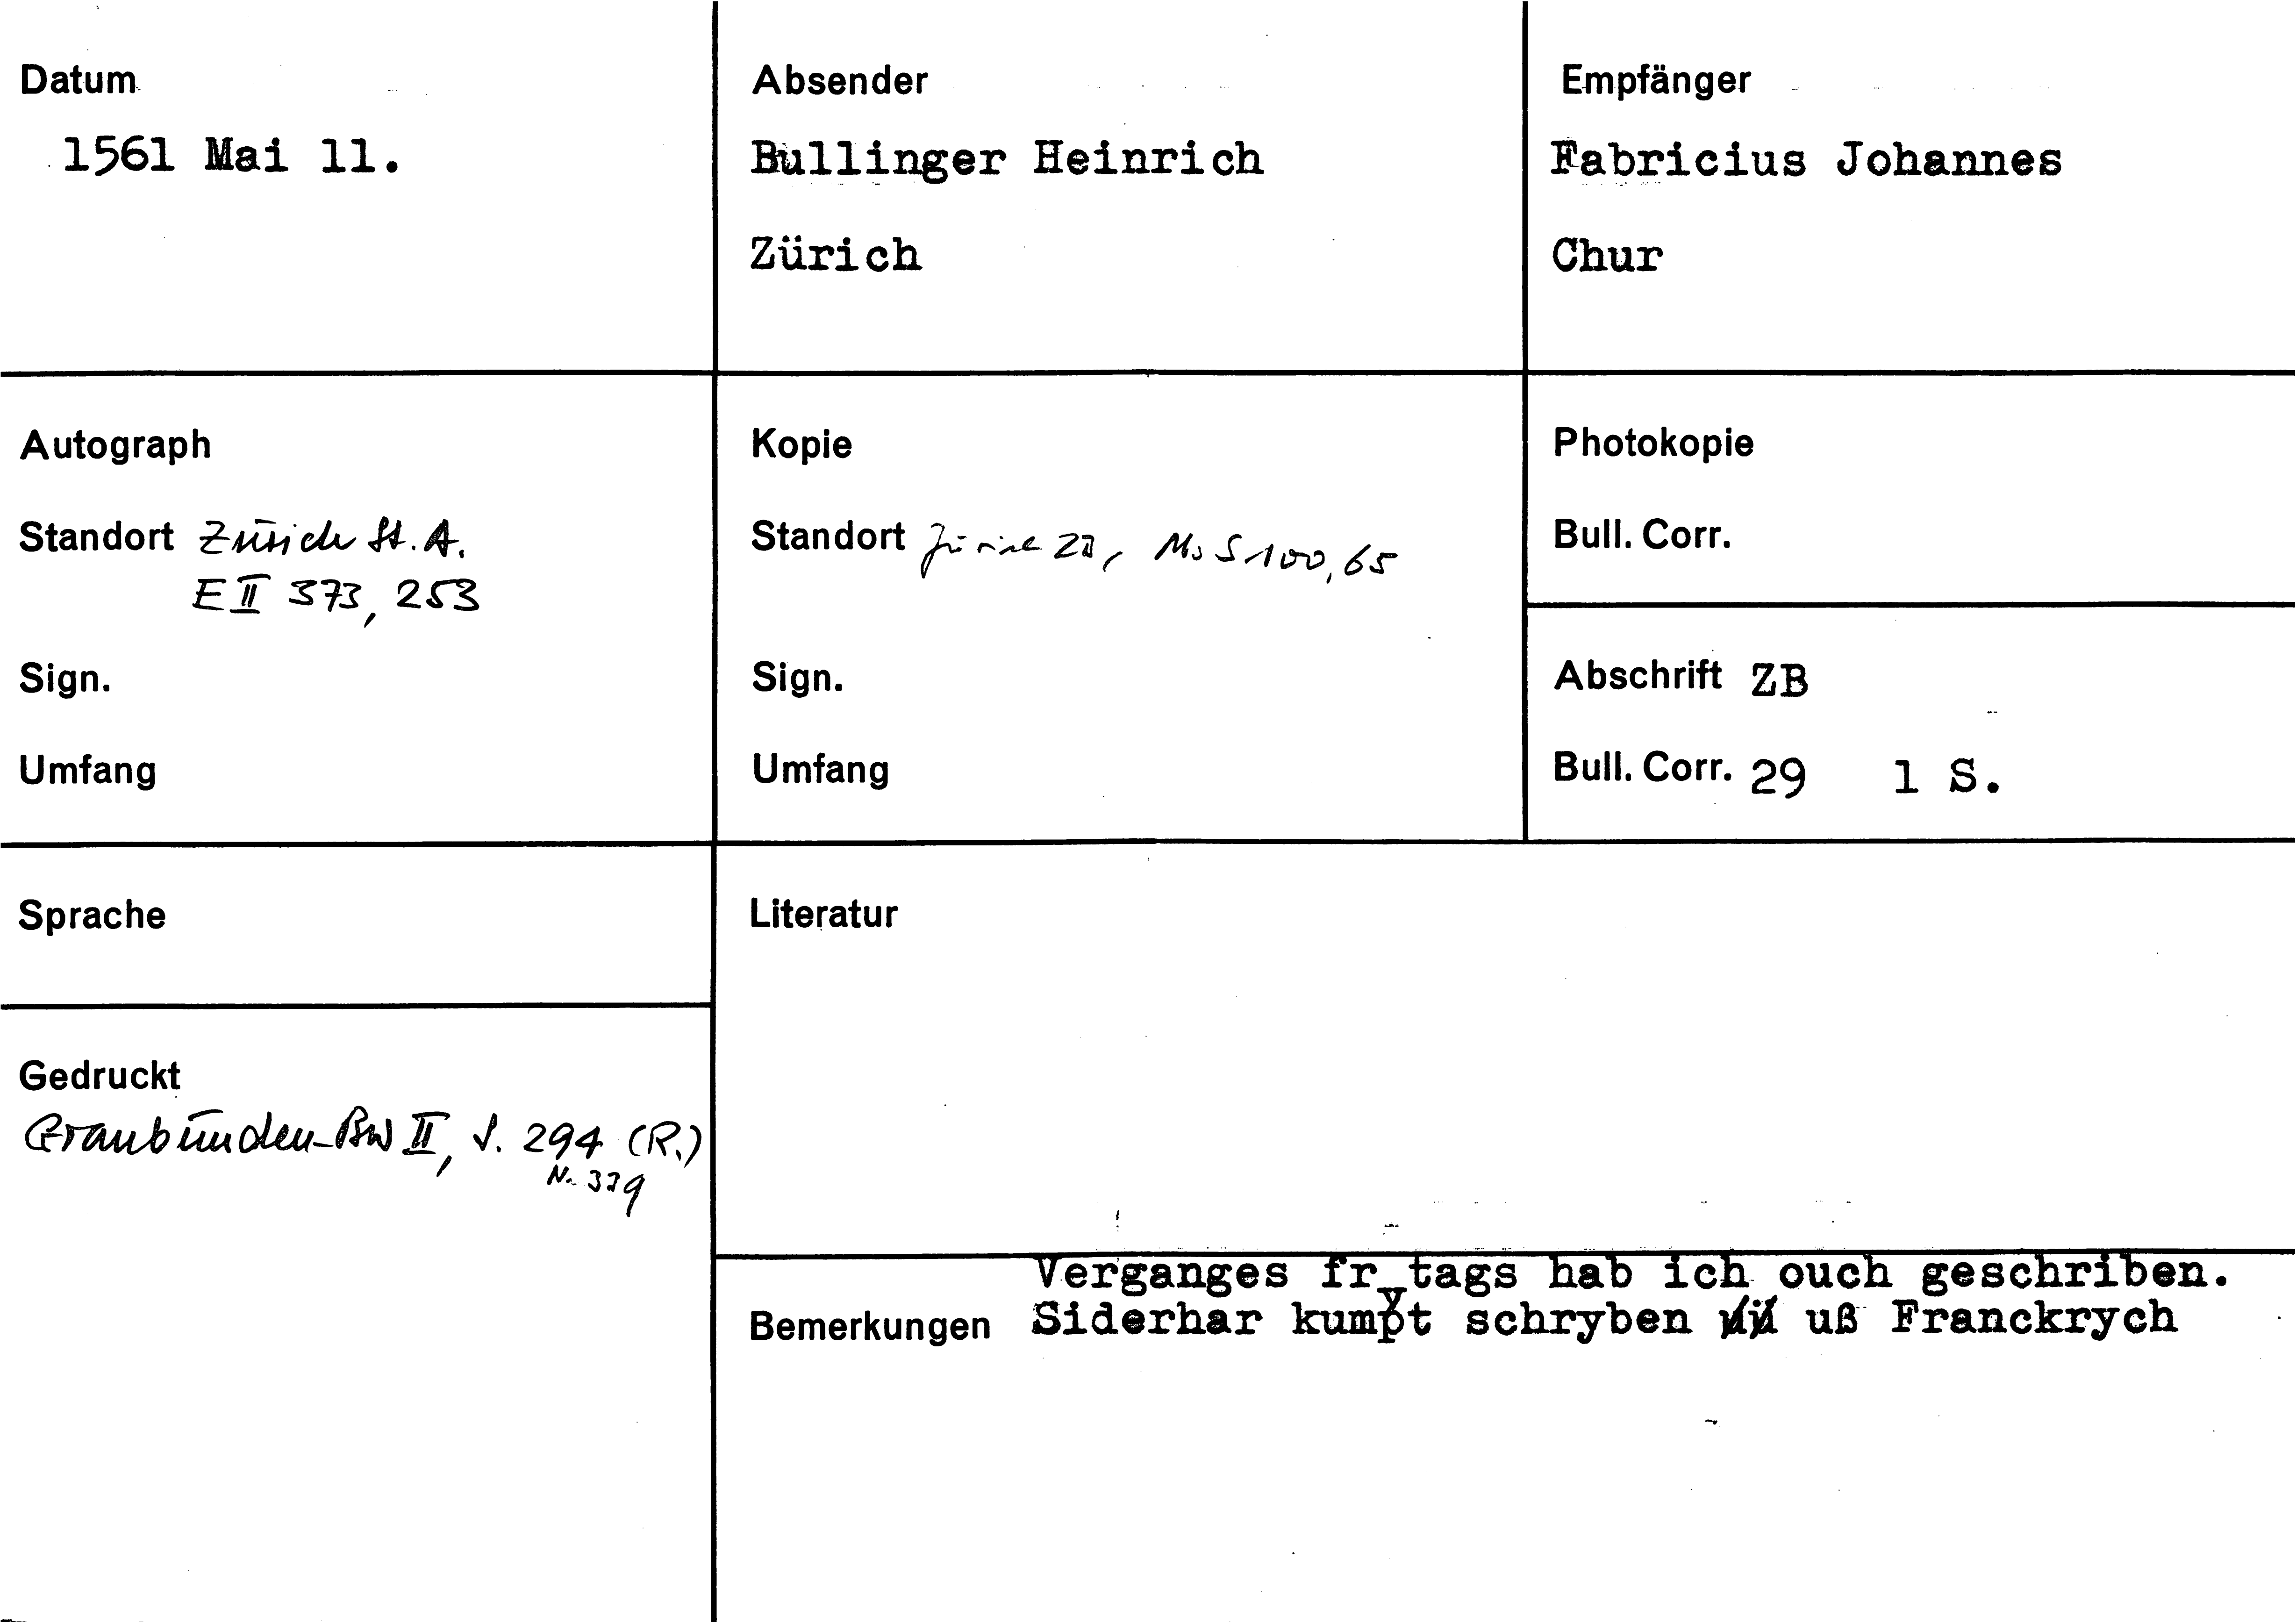 Datum
1561 Mai 11.
Absender
Bullinger Heinrich
Zürich
Empfänger
Fabricius Johannes
Chur
Autograph
Standort Zürich St. A.
E II 373, 253
Sign.
Umfang
Kopie
Standort Zürich ZB, Ms S 100, 65
Sign.
Umfang
Photokopie
Bull. Corr.
Abschrift ZB
Bull. Corr. 29 1 S.
Sprache
Gedruckt
Graubünden-BW II, S. 294 (R.)
Literatur
Verganges frytags hab ich ouch geschriben.
Bemerkungen Siderhar kumpt schryben uß Franckrych